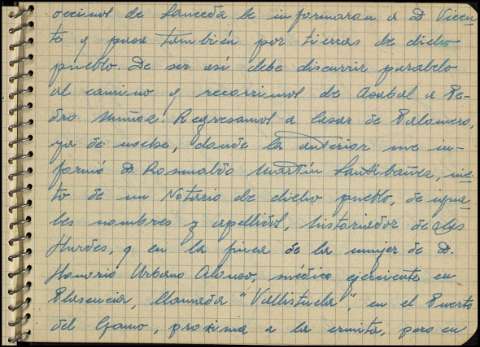 vecinos de Lanceda le informaran a D. Vicen-
te y pasa también por tierras de dicho
pueblo. De ser así debe discurrir paralelo
al camino y recorrimos de Asabal a Pe-
dro Muñoz. Regresamos a Casar de Palomero,
ya de noche, donde la anterior me in-
formó D. Rosendo Martín Santibáñez, nie-
to de un Notario de dicho pueblo, de igua-
les nombres y apellidos, historiador de las
Hurdes, y en la finca de la mujer de D.
Honorio Urbano Alonso, médico ejerciente en
Plasencia, llamada "Vallistuela", en el Puerto
del Gamo, próxima a la ermita, pero en